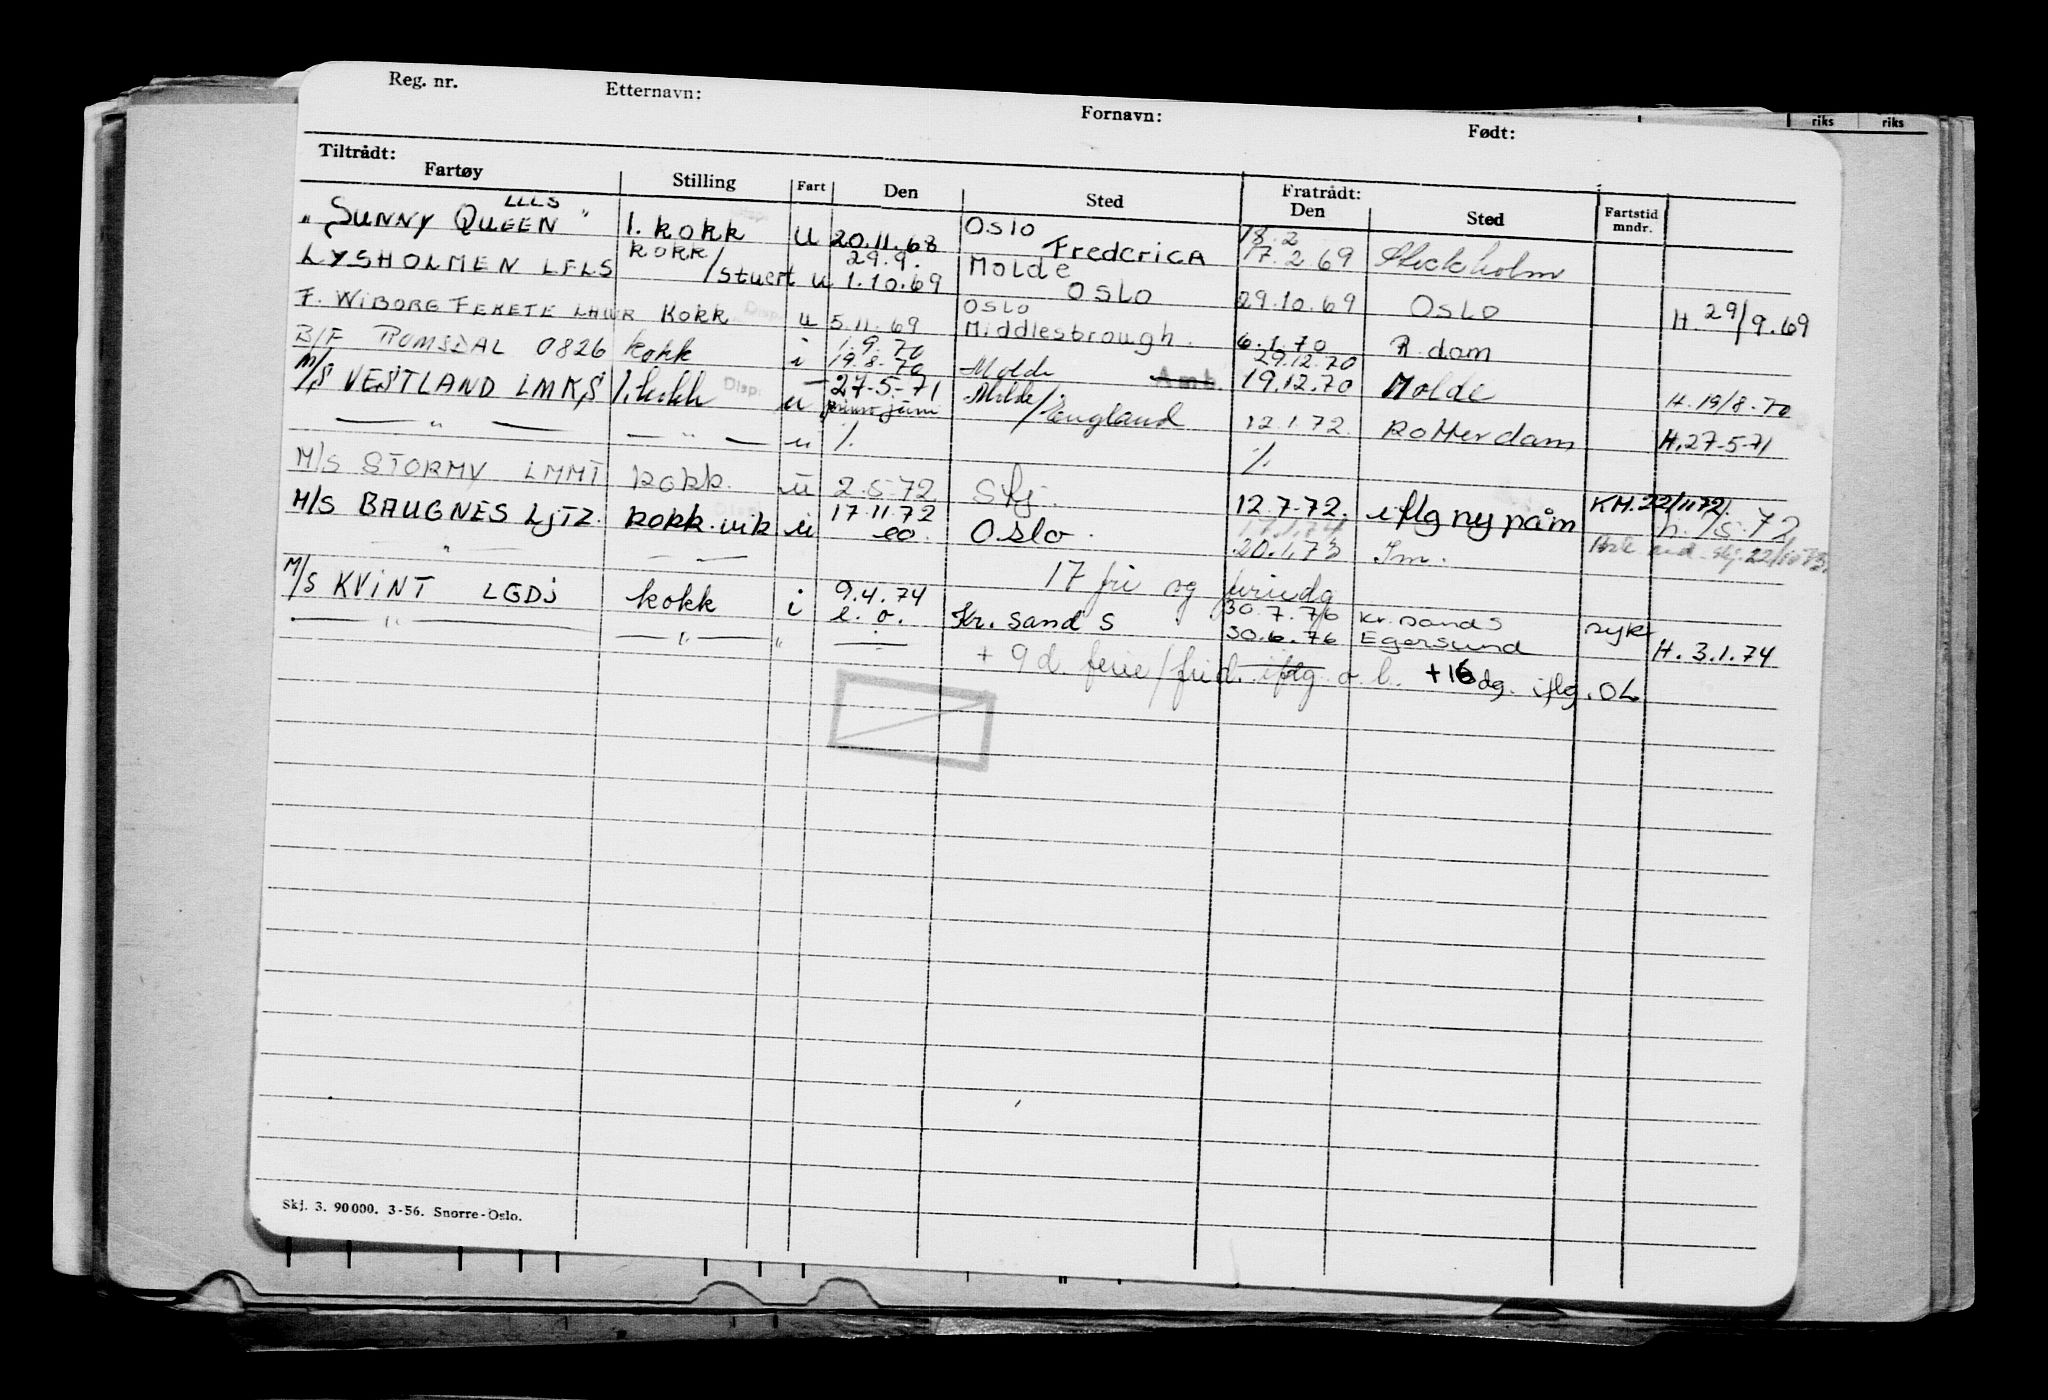 Reg. nr. Etternavn: Fornavn: Født:
Tiltrådt: Fratrådt:
Fartøy Stilling Fart Den Sted Den Sted Fartstid mndr.
riks riks
LLLS
"SUNNY QUEEN" 1. kokk u 20.11.68 Oslo Fredericia 18.2 17.2 69 Stockholm
LYSHOLMEN LFLS kokk/stuert u 29.9. 1.10.69 Molde Oslo 29.10.69 Oslo H. 29/9.69
F. WIBORG FEKETE LHWR kokk u 5.11.69 Oslo Middlesbrough. 6.1.70 R.dam
B/F ROMSDAL 0826 kokk i 1.9.70 19.8.70 Molde 29.12.70 19.12.70 Molde H. 19/8.70
M/S VESTLAND LMKS 1. kokk u 27-5-71 primo juni Molde/England 12.1.72. Rotterdam H. 27-5-71
— " — — " — u % %
M/S STORMY LMMT kokk. u 2.5.72 Skj. 12.7.72. iflg ny påm KM. 22/11 72. h. /5.72
M/S BAUGNES LJTZ. kokk.vik u 17.11.72 eo. Oslo. 20.1.73 Im.
— " — 17 fri og feriedg
M/S KVINT LGDJ kokk i 9.4.74 e.o. Kr.sand S 30.7.76 Kr.sand S syk H. 3.1.74
— " — — " — " — 30.6.76 Egersund
+ 9 d. ferie/frid. iflg. o.l. +16 dg. iflg. OL
Skj. 3. 90 000. 3-56. Snorre-Oslo.